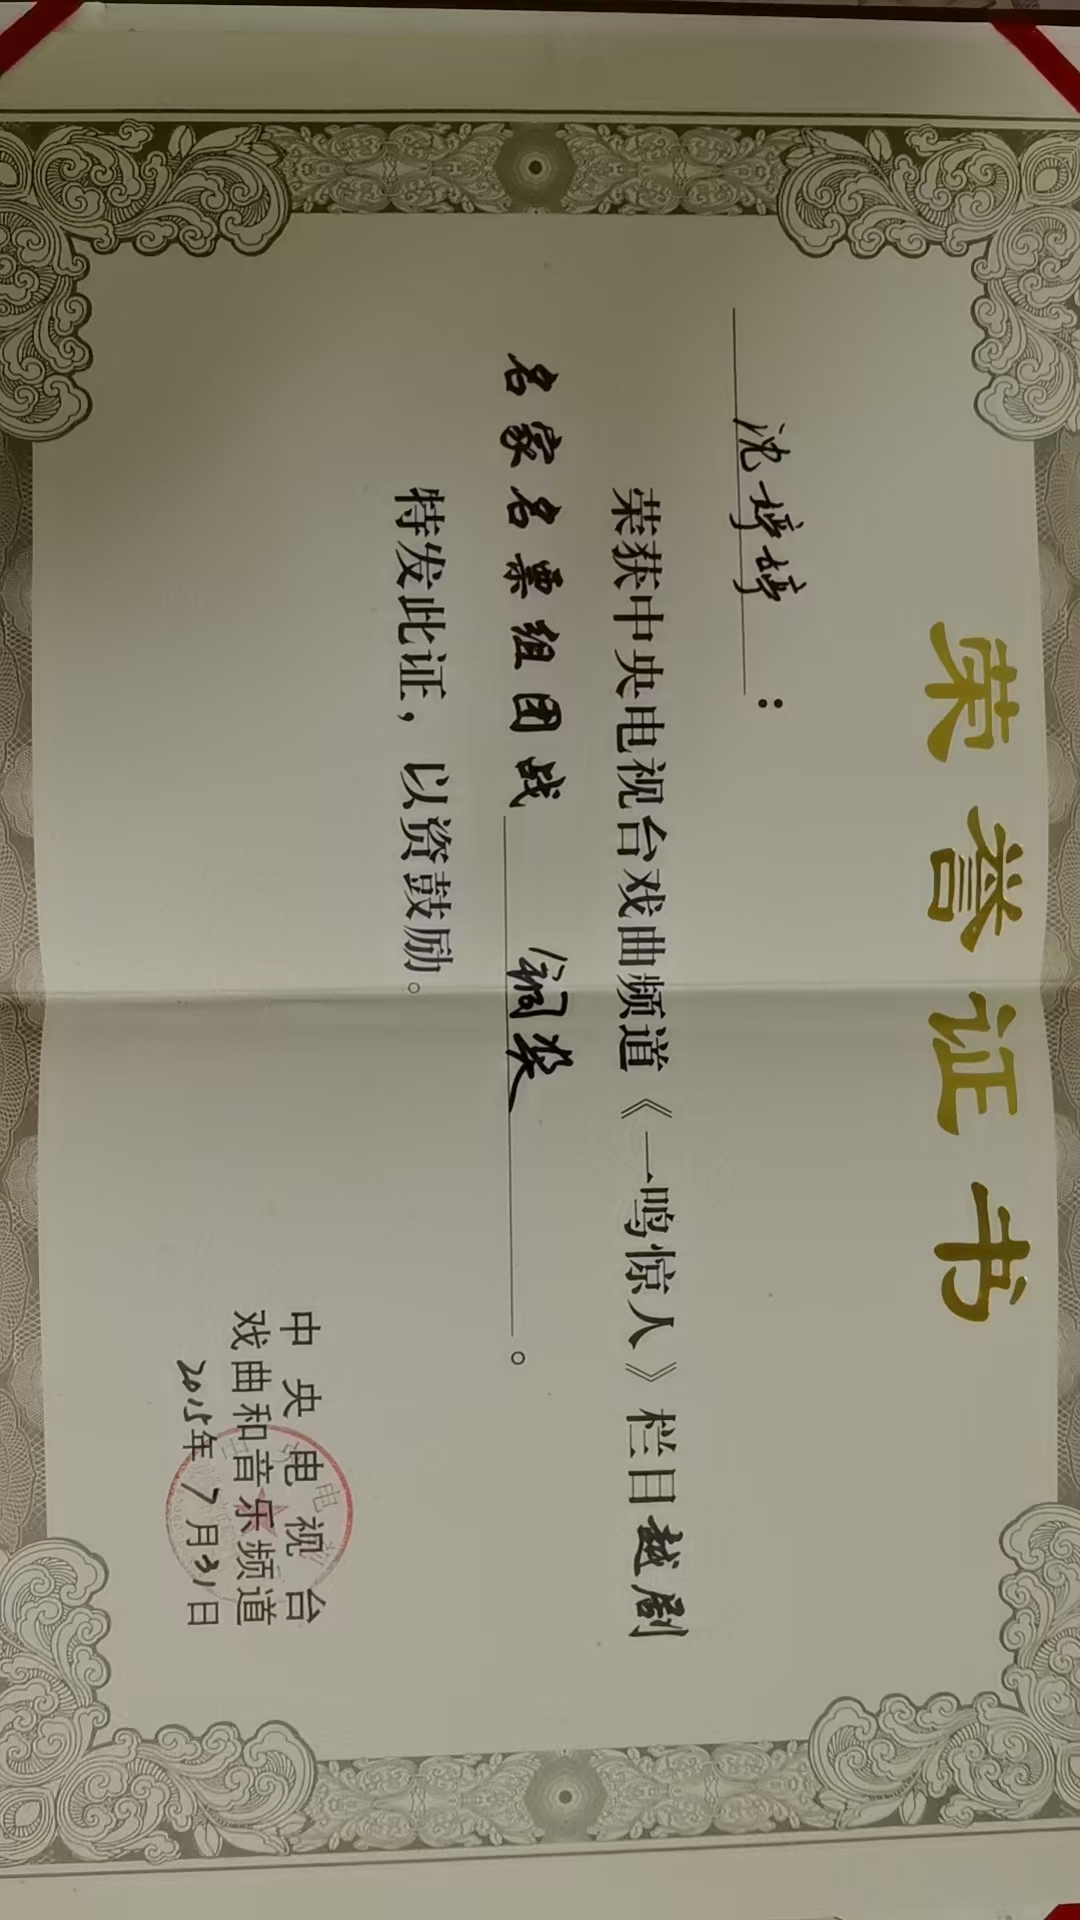 荣誉证书
沈婷婷：
荣获中央电视台戏曲频道《一鸣惊人》栏目越剧
名家名票组团战 铜奖。
特发此证，以资鼓励。
中央电视台
戏曲和音乐频道
2015年7月31日